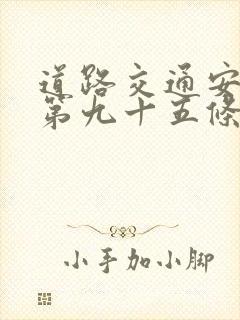 道路交通安
第九十五條
小手加小脚